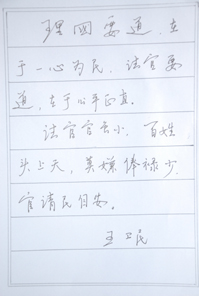 理国要道,在
于一心为民。法官要
道,在于公平正直。
法官官虽小,百姓
头上天,莫嫌俸禄少,
官清民自安。
王卫民